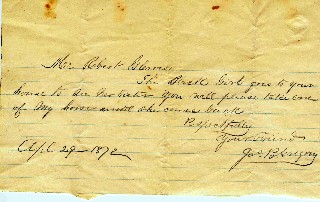 Mr. Robert
The Girl goes to your
house to see her sister you will please take care
of my horse until she comes back
Respectfully
Your Friend
Jas. B. Gregory
Apl. 29 - 1872